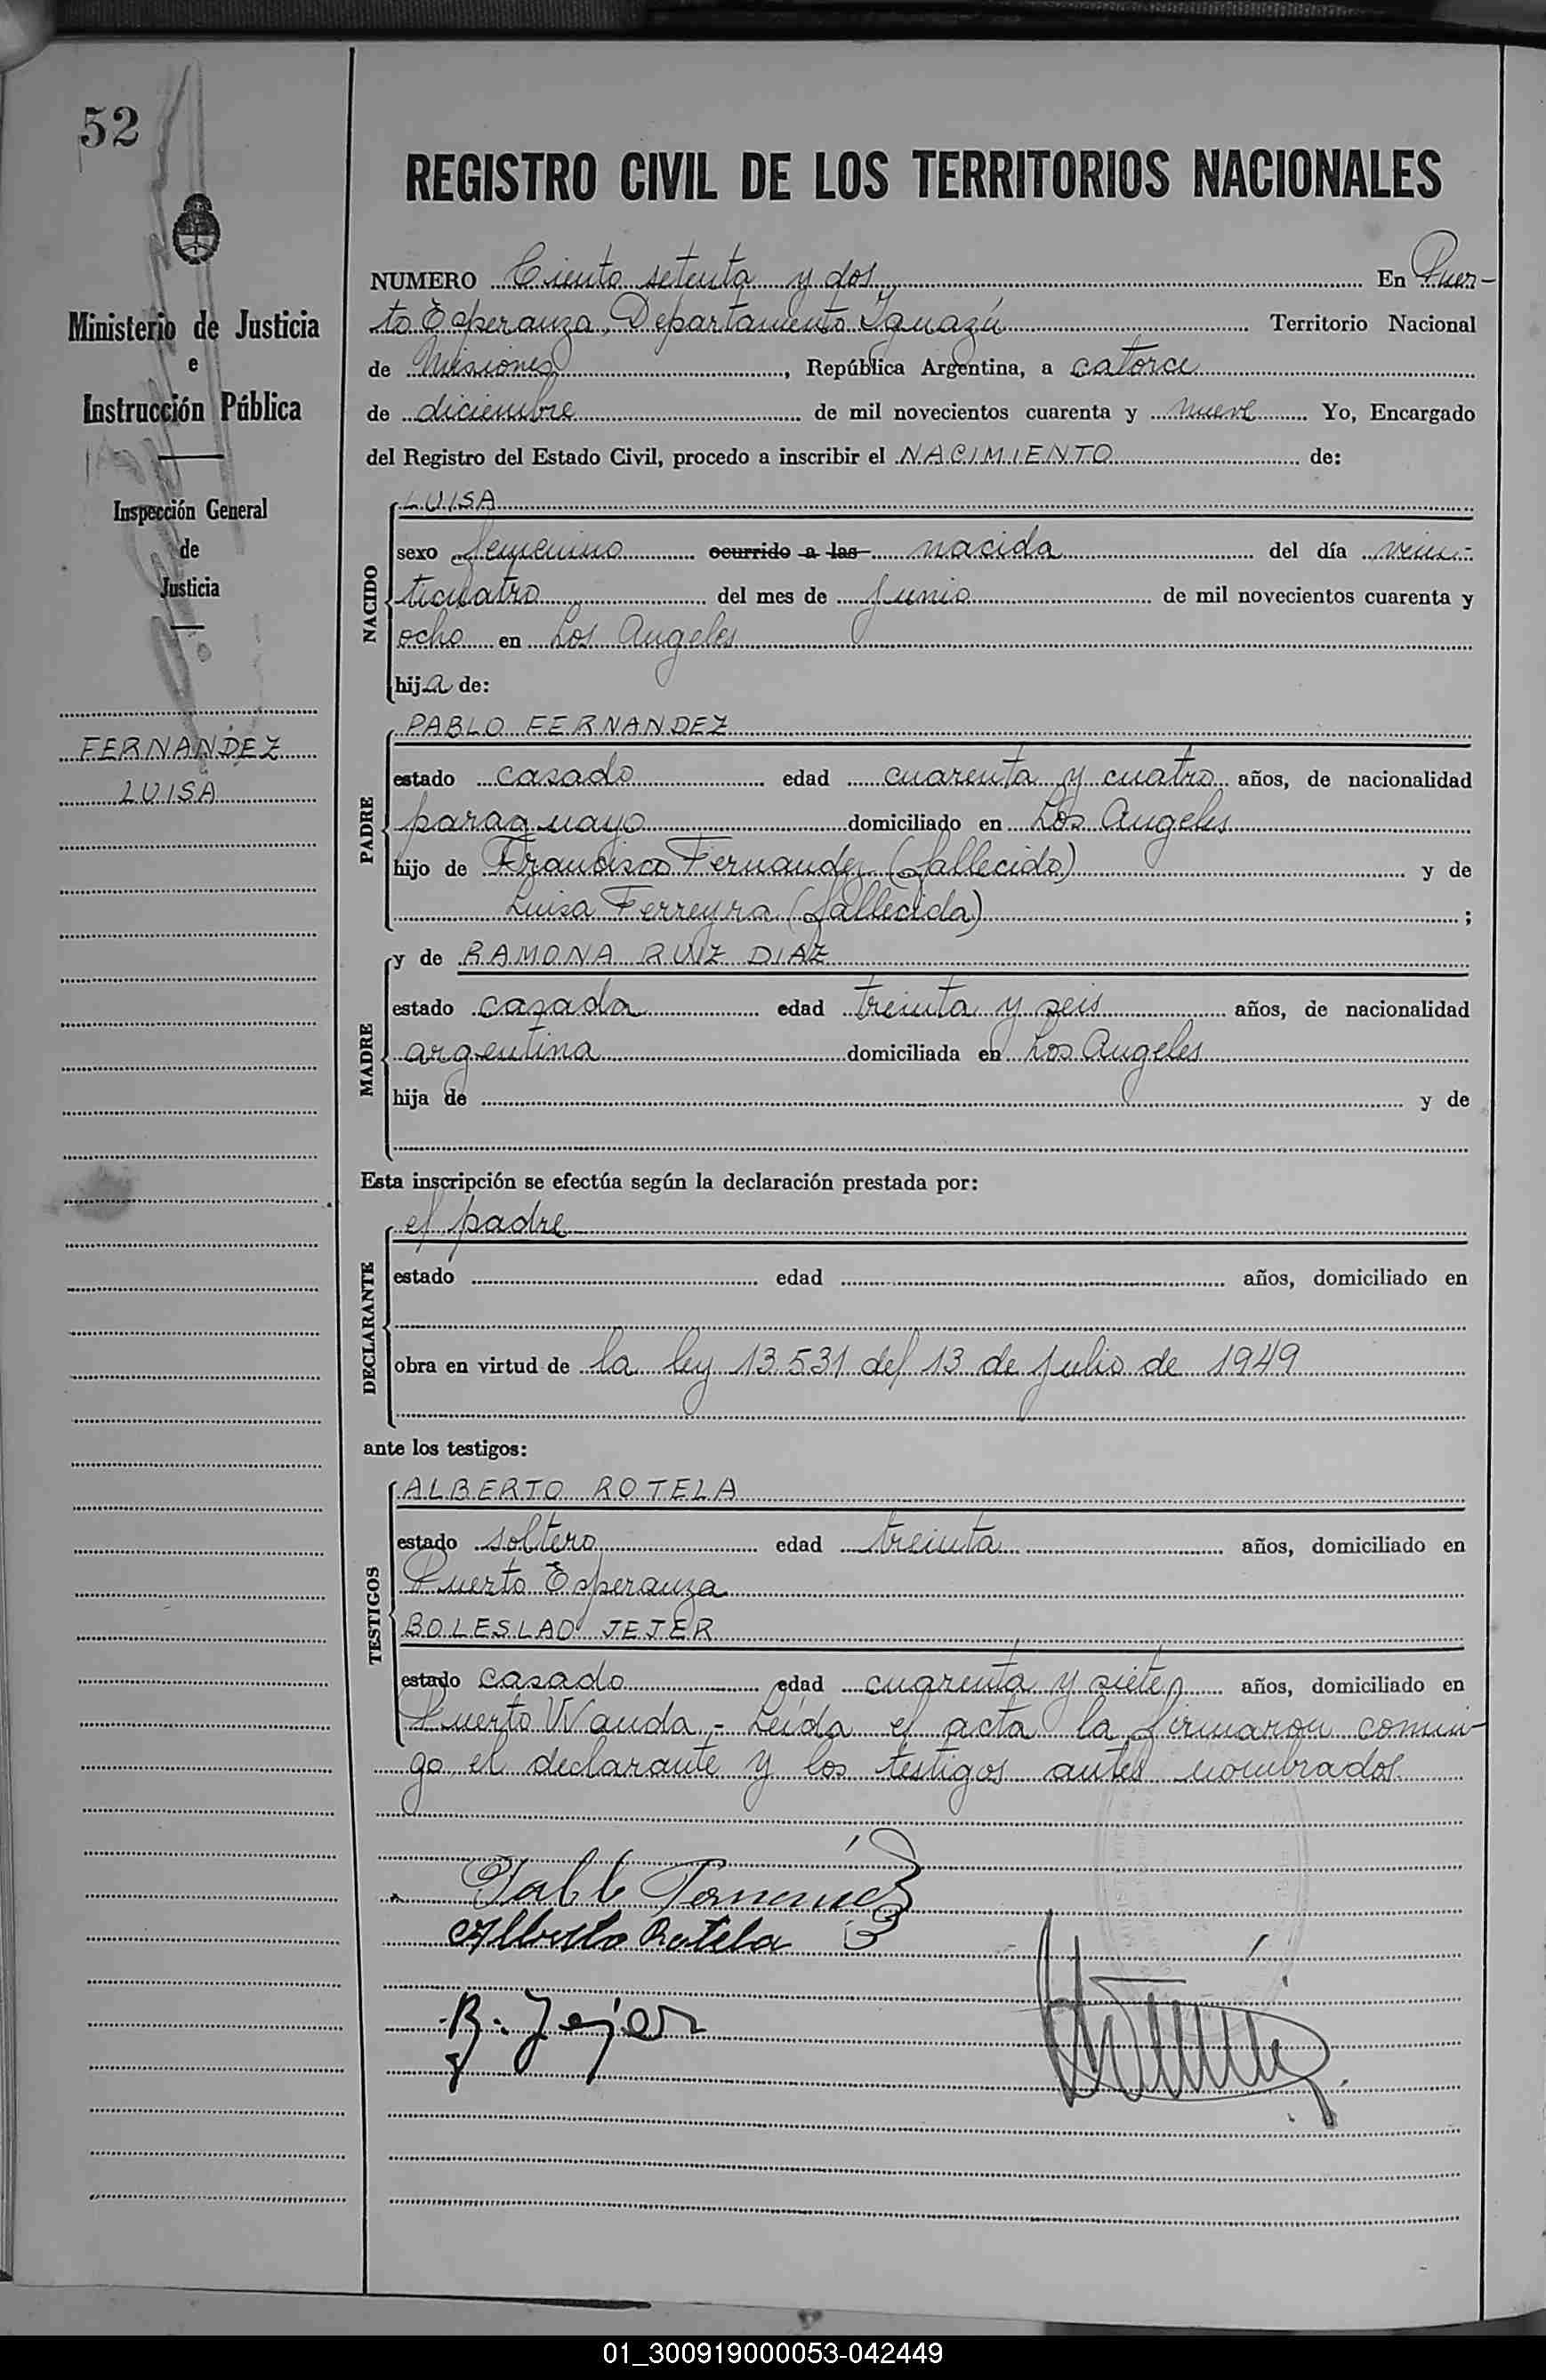 52
Ministerio de Justicia
e
Instrucción Pública
Inspección General
de
Justicia
FERNANDEZ
LUISA
REGISTRO CIVIL DE LOS TERRITORIOS NACIONALES
NUMERO Ciento setenta y dos En Puer-
to Esperanza, Departamento Iguazú Territorio Nacional
de Misiones, República Argentina, a catorce
de diciembre de mil novecientos cuarenta y nueve Yo, Encargado
del Registro del Estado Civil, procedo a inscribir el NACIMIENTO de:
NACIDO
LUISA
sexo femenino ocurrido a las nacida del día vein-
ticuatro del mes de Junio de mil novecientos cuarenta y
ocho en Los Angeles
hija de:
PADRE
PABLO FERNANDEZ
estado casado edad cuarenta y cuatro años, de nacionalidad
paraguayo domiciliado en Los Angeles
hijo de Francisco Fernandez (fallecido) y de
Luisa Ferreyra (fallecida);
MADRE
y de RAMONA RUIZ DIAZ
estado casada edad treinta y seis años, de nacionalidad
argentina domiciliada en Los Angeles
hija de y de
Esta inscripción se efectúa según la declaración prestada por:
DECLARANTE
el padre
estado edad años, domiciliado en
obra en virtud de la ley 13.531 del 13 de Julio de 1949
ante los testigos:
TESTIGOS
ALBERTO ROTELA
estado soltero edad treinta años, domiciliado en
Puerto Esperanza
BOLESLAO JEJER
estado casado edad cuarenta y siete años, domiciliado en
Puerto Wanda.- Leída el acta la firmaron conmi-
go el declarante y los testigos antes nombrados
Pablo Fernandez
Alberto Rotela
B. Jejer
01_300919000053-042449